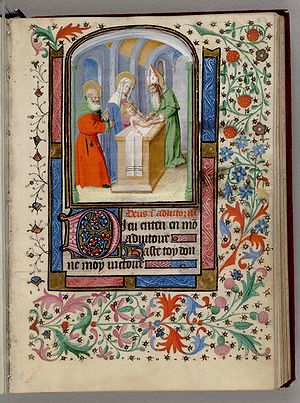 Deus i adiutoriu
Dieu enten en mō
Adiutoire
Haste toy don
ne moy uictoire